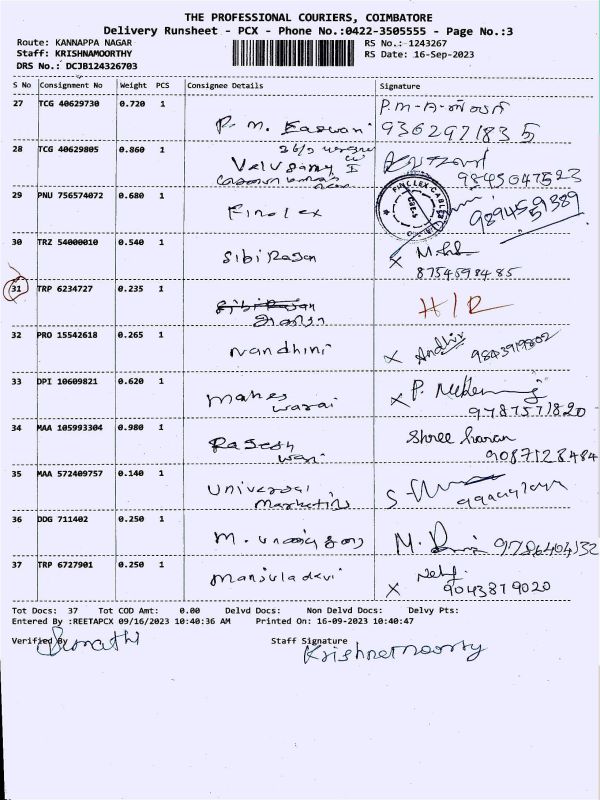 THE PROFESSIONAL COURIERS, COIMBATORE
Delivery Runsheet - PCX - Phone No.:0422-3505555 - Page No.:3
Route: KANNAPPA NAGAR
Staff: KRISHNAMOORTHY
DRS No.: DCJB124326703
RS No.: 1243267
RS Date: 16-Sep-2023
S No Consignment No Weight PCS Consignee Details Signature
27 TCG 40629730 0.720 1 P. M. P.M-A-
9362971835
28 TCG 40629805 0.860 1
Velusamy I
9845047523
29 PNU 756574072 0.680 1 Finolex FINOLEX CABLES CBE-4
9894559389
30 TRZ 54000010 0.540 1 Sibi Rasan X
8754598485
31 TRP 6234727 0.235 1 Sibi Rasan H/R
32 PRO 15542618 0.265 1 Nandhini X 9843919802
33 DPI 10609821 0.620 1 Mahes X P.
warai 9787571820
34 MAA 105993304 0.980 1 Rasesh Shree haran
wari 9087128484
35 MAA 572409757 0.140 1 Universal S
Marketing
36 DDG 711402 0.250 1 M. M. 9786404132
37 TRP 6727901 0.250 1 Manjuladevi X
9043879020
Tot Docs: 37 Tot COD Amt: 0.00 Delvd Docs: Non Delvd Docs: Delvy Pts:
Entered By :REETAPCX 09/16/2023 10:40:36 AM Printed On: 16-09-2023 10:40:47
Verified By Staff Signature
Krishnamoorthy